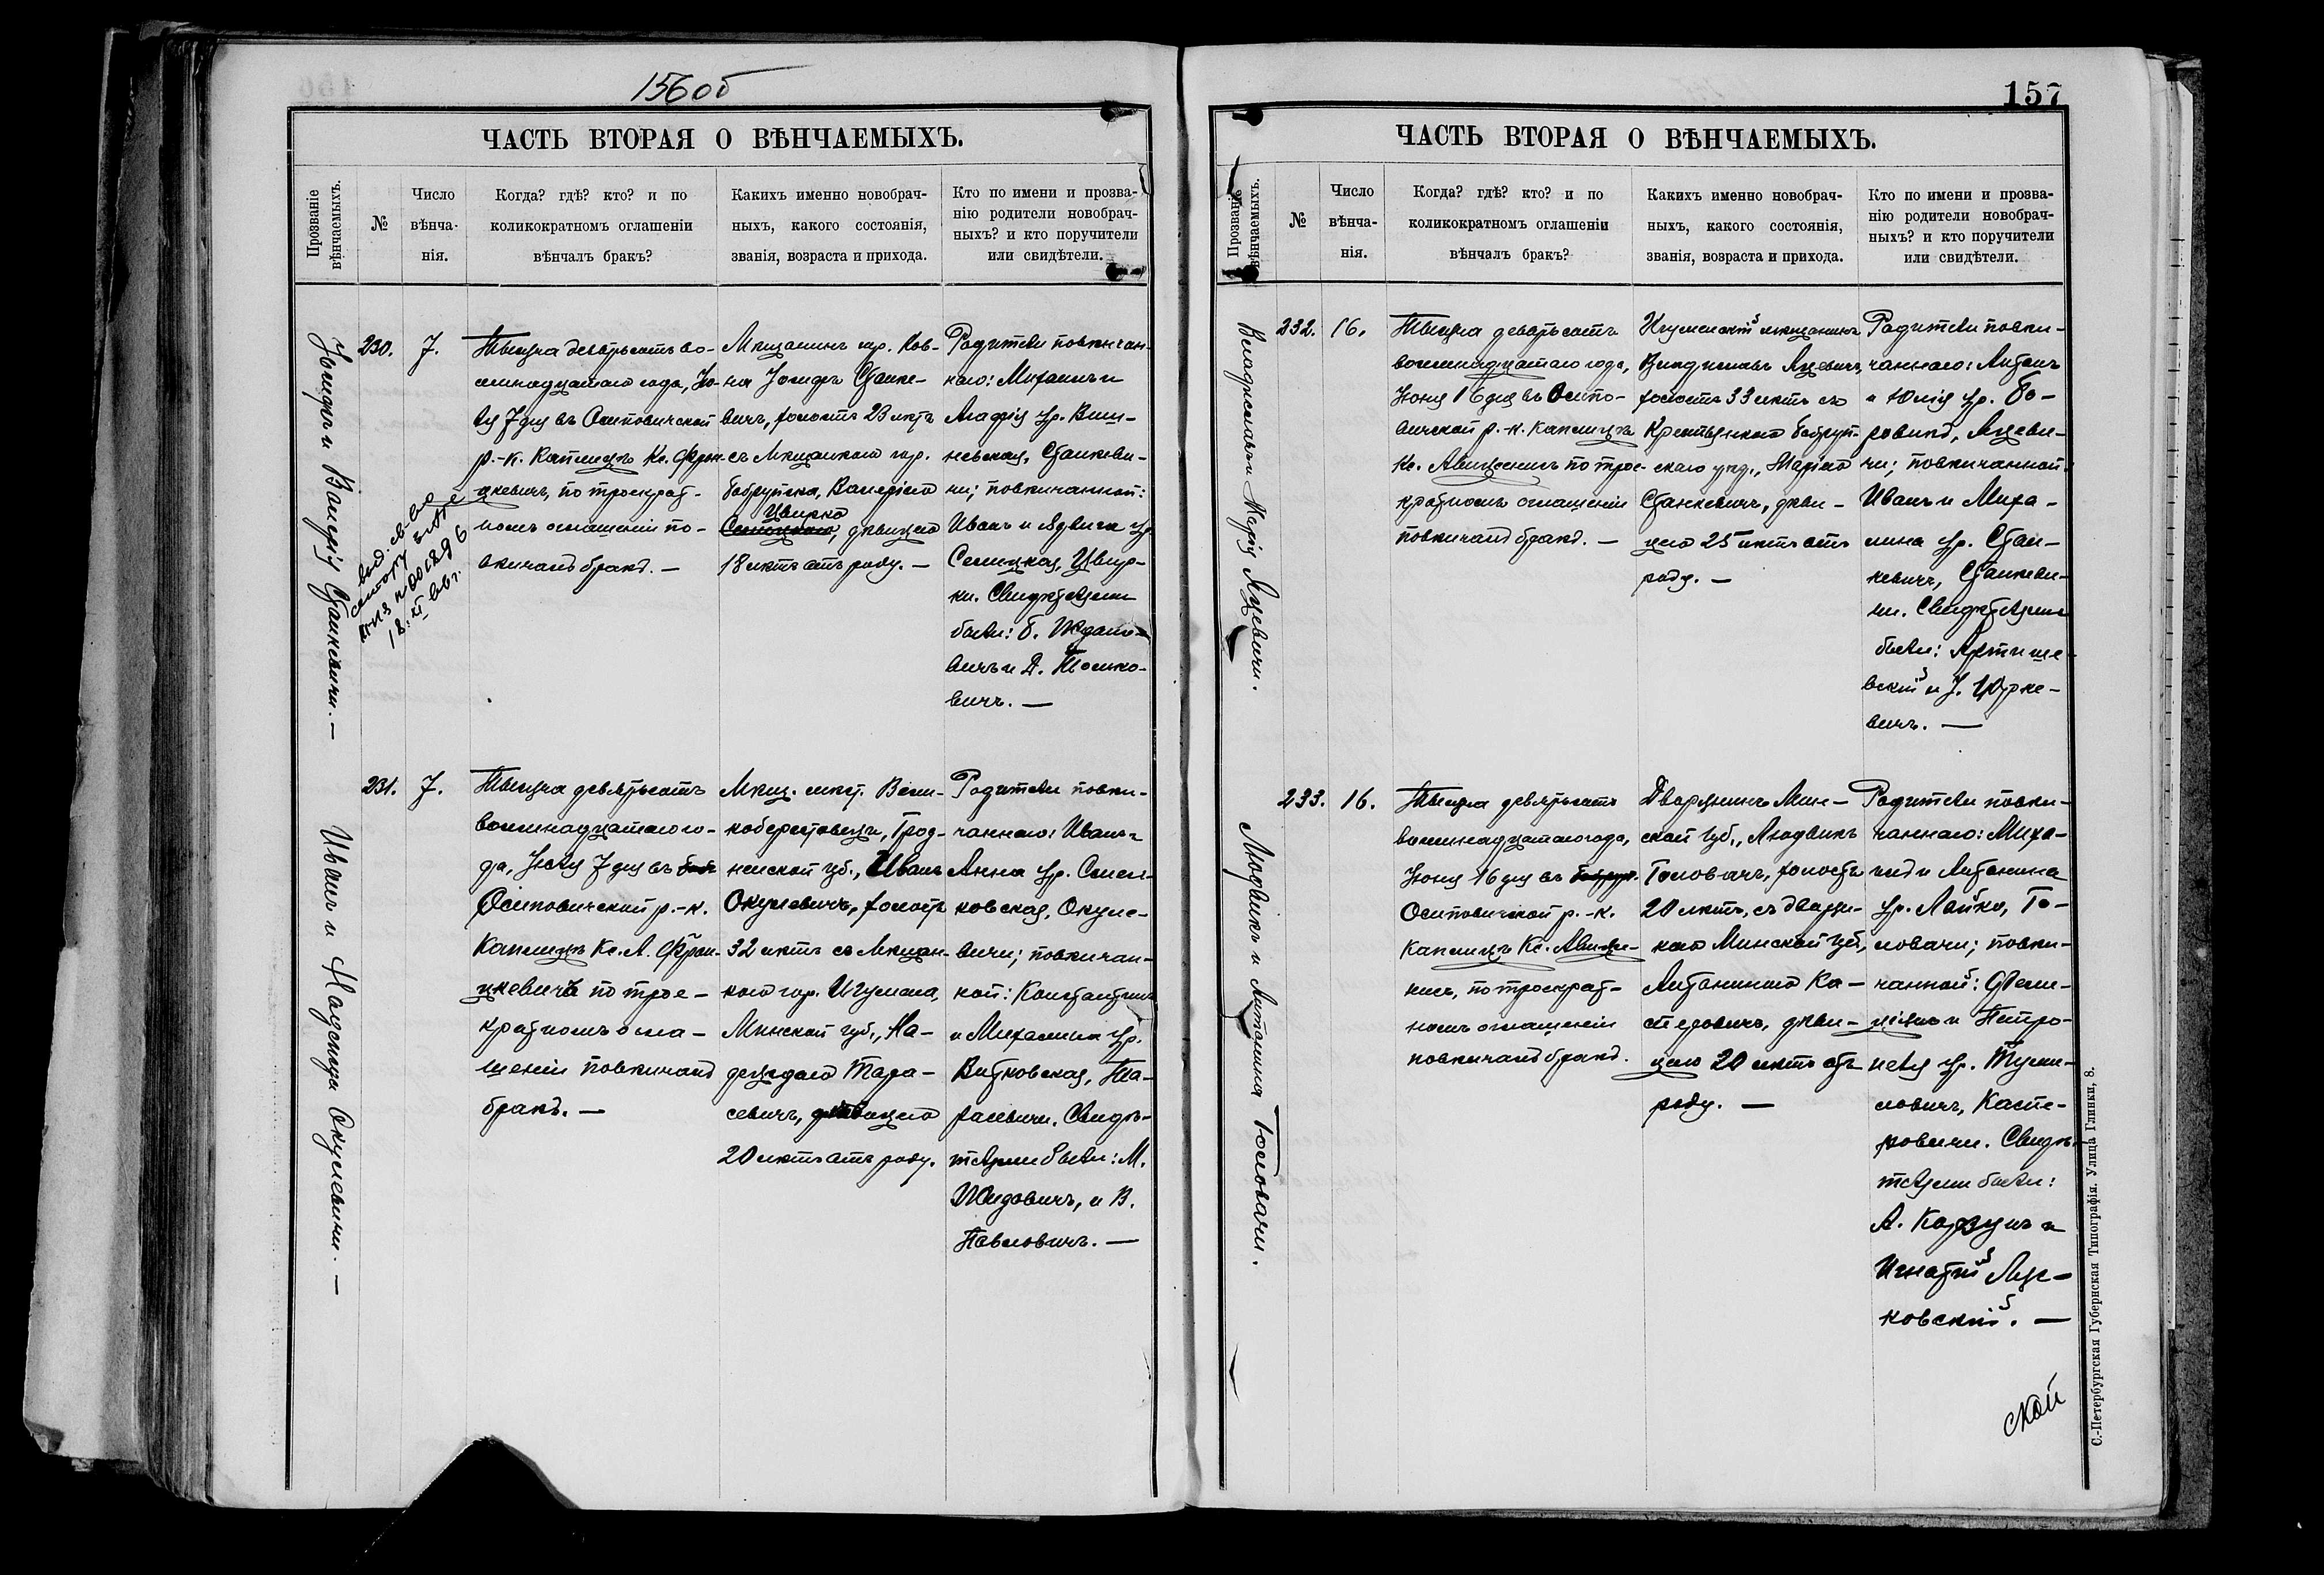 156об
ЧАСТЬ ВТОРАЯ О ВѢНЧАЕМЫХЪ.
Прозваніе
вѣнчаемыхъ.
№
Число
вѣнча-
нія.
Когда? гдѣ? кто? и по
коликократномъ оглашеніи
вѣнчалъ бракъ?
Какихъ именно новобрач-
ныхъ, какого состоянія,
званія, возраста и прихода.
Кто по имени и прозва-
нію родители новобрач-
ныхъ? и кто поручители
или свидѣтели.
Іосифъ и Валерія Станкевичи. —
230.
7.
Тысяча девятьсотъ во-
семнадцатаго года, Ію-
ля 7 дня въ Осиповичской
р.-к. Каплицѣ Кс. Фрон-
цкевичъ, по троекрат-
номъ оглашеніи по-
вѣнчалъ бракъ. —
Мѣщанинъ гор. Ков-
на Іосифъ Станке-
вичъ, холостъ 23 лѣтъ
съ мѣщанкою гор.
Бобруйска, Валеріею
Цвирко
дѣвицею
18 лѣтъ отъ роду. —
Родители повѣнчан-
наго: Михаилъ и
Агафія ур. Виш-
невская, Станкеви-
чи; повѣнчанной:
Иванъ и Ядвига ур.
Селицкая, Цвир-
ки. Свидѣтелями
были: Б. Ждано-
вичъ и Д. Томко-
вичъ. —
выд. св-во
18.XI.66г.
Иванъ и Надежда Окулевичи. —
231.
7.
Тысяча девятьсотъ
восемнадцатаго го-
да, Іюля 7 дня въ
Осиповичской р.-к.
Каплицѣ Кс. А. Фрон-
цкевичъ по трое-
кратномъ огла-
шеніи повѣнчалъ
бракъ. —
Мѣщ. мѣст. Вели-
коберестовицы, Грод-
ненской губ., Иванъ
Окулевичъ, холостъ
32 лѣтъ съ мѣщан-
кою гор. Игумена,
Минской губ., На-
деждою Тара-
севичъ, дѣвицею
20 лѣтъ отъ роду.
Родители повѣн-
чаннаго: Иванъ и
Анна ур.
ковская, Окуле-
вичи; повѣнчан-
ной: Константинъ
и Михалина ур.
Витковская, Та-
расевичи. Свидѣ-
телями были: М.
Жидовичъ, и В.
Павловичъ. —
157
ЧАСТЬ ВТОРАЯ О ВѢНЧАЕМЫХЪ.
Прозваніе
вѣнчаемыхъ.
№
Число
вѣнча-
нія.
Когда? гдѣ? кто? и по
коликократномъ оглашеніи
вѣнчалъ бракъ?
Какихъ именно новобрач-
ныхъ, какого состоянія,
званія, возраста и прихода.
Кто по имени и прозва-
нію родители новобрач-
ныхъ? и кто поручители
или свидѣтели.
Владиславъ и Марія Яцевичи.
232.
16.
Тысяча девятьсотъ
восемнадцатаго года,
Іюня 16 дня въ Осипо-
вичской р.-к. Каплицѣ
Кс. по трое-
кратномъ оглашеніи
повѣнчалъ бракъ. —
Игуменскій мѣщанинъ
Владиславъ Яцевичъ,
холостъ 33 лѣтъ съ
Крестьянкою Бобруй-
скаго уѣз., Маріею
Станкевичъ, дѣви-
цею 25 лѣтъ отъ
роду. —
Родители повѣн-
чаннаго: Антонъ
и Юлія ур.
Яцеви-
чи; повѣнчанной:
Иванъ и Миха-
лина ур. Стан-
кевичъ, Станкеви-
чи. Свидѣтелями
были: Артише-
вскій и І. Юрке-
вичъ. —
Людвикъ и Антонина Головачи.
233.
16.
Тысяча девятьсотъ
восемнадцатаго года,
Іюня 16 дня въ
Осиповичской р.-к.
каплицѣ Кс.
по троекрат-
номъ оглашеніи
повѣнчалъ бракъ.
Дворянинъ Мин-
ской губ., Людвикъ
Головачъ, холостъ
20 лѣтъ, съ дворян-
кою Минской губ,
Антониною Ка-
сперовичъ, дѣви-
цею 20 лѣтъ отъ
роду. —
Родители повѣн-
чаннаго: Миха-
илъ и Антонина
ур. Лойко, Го-
ловачи; повѣн-
чанной: Фели-
ціянъ и Петро-
неля ур.
Каспе-
ровичи. Свидѣ-
телями были:
А. Корзунъ и
Игнатій
ковскій. —
ской
С.-Петербургская Губернская Типографія. Улица Глинки, 8.